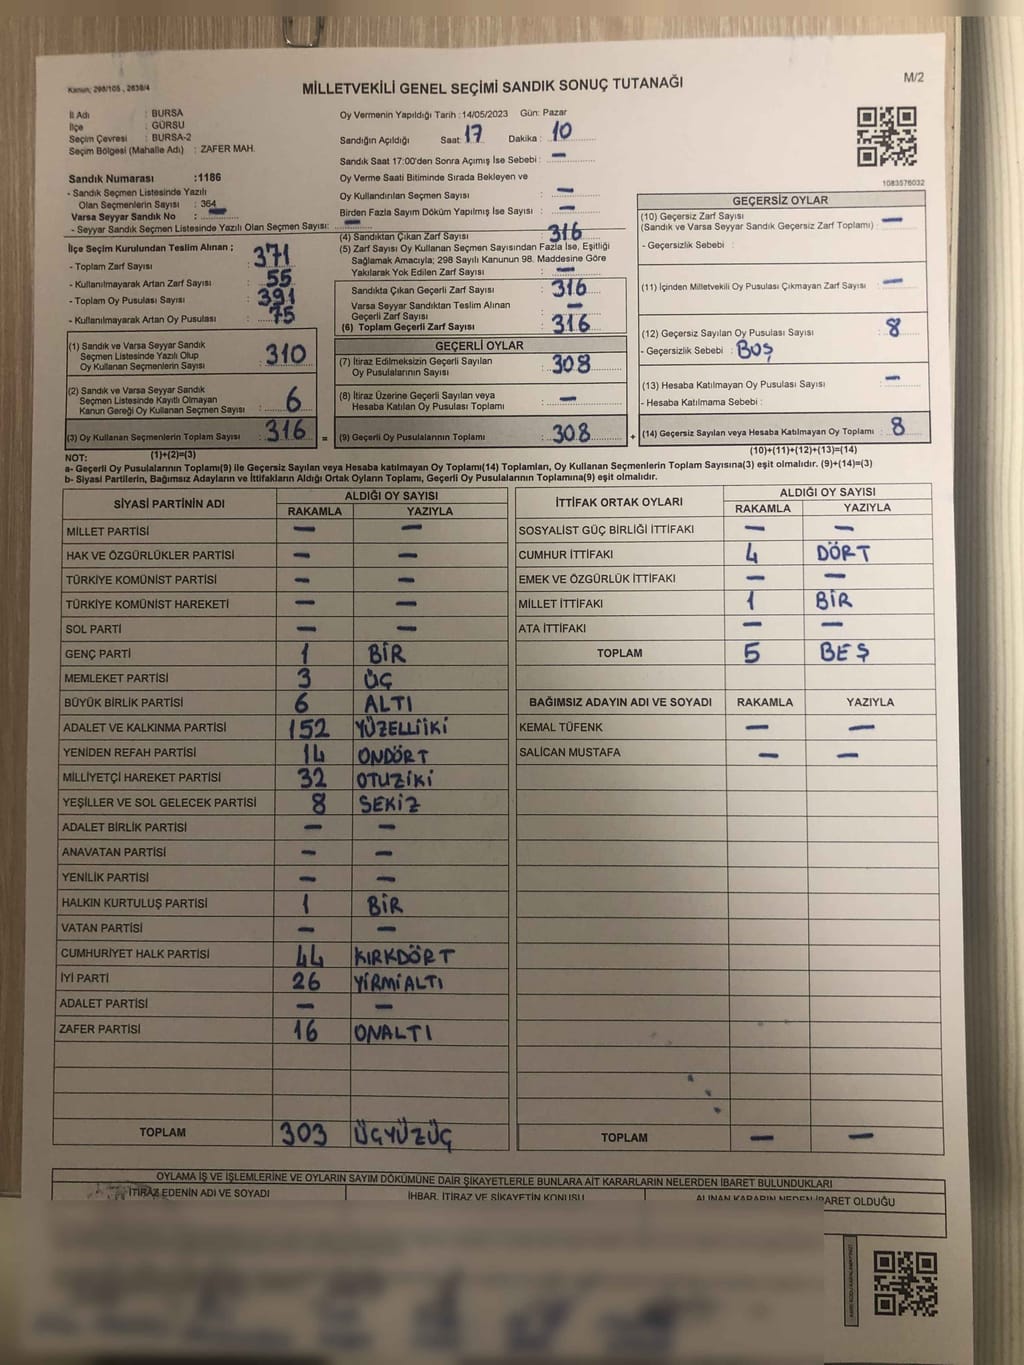 Kanun, 298/105 , 2839/4
MİLLETVEKİLİ GENEL SEÇİMİ SANDIK SONUÇ TUTANAĞI
M/2
İl Adı : BURSA
İlçe : GÜRSU
Seçim Çevresi : BURSA-2
Seçim Bölgesi (Mahalle Adı) : ZAFER MAH.
Oy Vermenin Yapıldığı Tarih : 14/05/2023 Gün: Pazar
Sandığın Açıldığı Saat: 17 Dakika : 10
Sandık Saat 17:00'den Sonra Açımış İse Sebebi : —
Oy Verme Saati Bitiminde Sırada Bekleyen ve
Oy Kullandırılan Seçmen Sayısı : —
Birden Fazla Sayım Döküm Yapılmış İse Sayısı : —
Sandık Numarası :1186
- Sandık Seçmen Listesinde Yazılı
Olan Seçmenlerin Sayısı : 364
Varsa Seyyar Sandık No : —
- Seyyar Sandık Seçmen Listesinde Yazılı Olan Seçmen Sayısı: —
İlçe Seçim Kurulundan Teslim Alınan ;
- Toplam Zarf Sayısı : 371
- Kullanılmayarak Artan Zarf Sayısı : 55
- Toplam Oy Pusulası Sayısı : 391
- Kullanılmayarak Artan Oy Pusulası : 75
(1) Sandık ve Varsa Seyyar Sandık
Seçmen Listesinde Yazılı Olup
Oy Kullanan Seçmenlerin Sayısı : 310
(2) Sandık ve Varsa Seyyar Sandık
Seçmen Listesinde Kayıtlı Olmayan
Kanun Gereği Oy Kullanan Seçmen Sayısı : 6
(3) Oy Kullanan Seçmenlerin Toplam Sayısı : 316 =
(1)+(2)=(3)
(4) Sandıktan Çıkan Zarf Sayısı : 316
(5) Zarf Sayısı Oy Kullanan Seçmen Sayısından Fazla İse, Eşitliği
Sağlamak Amacıyla; 298 Sayılı Kanunun 98. Maddesine Göre
Yakılarak Yok Edilen Zarf Sayısı : —
Sandıkta Çıkan Geçerli Zarf Sayısı : 316
Varsa Seyyar Sandıktan Teslim Alınan
Geçerli Zarf Sayısı : —
(6) Toplam Geçerli Zarf Sayısı : 316
GEÇERLİ OYLAR
(7) İtiraz Edilmeksizin Geçerli Sayılan
Oy Pusulalarının Sayısı : 308
(8) İtiraz Üzerine Geçerli Sayılan veya
Hesaba Katılan Oy Pusulası Toplamı : —
(9) Geçerli Oy Pusulalarının Toplamı : 308 +
1083576032
GEÇERSİZ OYLAR
(10) Geçersiz Zarf Sayısı
(Sandık ve Varsa Seyyar Sandık Geçersiz Zarf Toplamı) : —
- Geçersizlik Sebebi :
(11) İçinden Milletvekili Oy Pusulası Çıkmayan Zarf Sayısı : —
(12) Geçersiz Sayılan Oy Pusulası Sayısı : 8
- Geçersizlik Sebebi : BOŞ
(13) Hesaba Katılmayan Oy Pusulası Sayısı : —
- Hesaba Katılmama Sebebi :
(14) Geçersiz Sayılan veya Hesaba Katılmayan Oy Toplamı : 8
(10)+(11)+(12)+(13)=(14)
NOT:
a- Geçerli Oy Pusulalarının Toplamı(9) ile Geçersiz Sayılan veya Hesaba katılmayan Oy Toplamı(14) Toplamları, Oy Kullanan Seçmenlerin Toplam Sayısına(3) eşit olmalıdır. (9)+(14)=(3)
b- Siyasi Partilerin, Bağımsız Adayların ve İttifakların Aldığı Ortak Oyların Toplamı, Geçerli Oy Pusulalarının Toplamına(9) eşit olmalıdır.
SİYASİ PARTİNİN ADI ALDIĞI OY SAYISI
RAKAMLA YAZIYLA
MİLLET PARTİSİ — —
HAK VE ÖZGÜRLÜKLER PARTİSİ — —
TÜRKİYE KOMÜNİST PARTİSİ — —
TÜRKİYE KOMÜNİST HAREKETİ — —
SOL PARTİ — —
GENÇ PARTİ 1 BİR
MEMLEKET PARTİSİ 3 ÜÇ
BÜYÜK BİRLİK PARTİSİ 6 ALTI
ADALET VE KALKINMA PARTİSİ 152 YÜZELLİİKİ
YENİDEN REFAH PARTİSİ 14 ONDÖRT
MİLLİYETÇİ HAREKET PARTİSİ 32 OTUZİKİ
YEŞİLLER VE SOL GELECEK PARTİSİ 8 SEKİZ
ADALET BİRLİK PARTİSİ — —
ANAVATAN PARTİSİ — —
YENİLİK PARTİSİ — —
HALKIN KURTULUŞ PARTİSİ 1 BİR
VATAN PARTİSİ — —
CUMHURİYET HALK PARTİSİ 44 KIRKDÖRT
İYİ PARTİ 26 YİRMİALTI
ADALET PARTİSİ — —
ZAFER PARTİSİ 16 ONALTI
TOPLAM 303 ÜÇYÜZÜÇ
İTTİFAK ORTAK OYLARI ALDIĞI OY SAYISI
RAKAMLA YAZIYLA
SOSYALİST GÜÇ BİRLİĞİ İTTİFAKI — —
CUMHUR İTTİFAKI 4 DÖRT
EMEK VE ÖZGÜRLÜK İTTİFAKI — —
MİLLET İTTİFAKI 1 BİR
ATA İTTİFAKI — —
TOPLAM 5 BEŞ
BAĞIMSIZ ADAYIN ADI VE SOYADI RAKAMLA YAZIYLA
KEMAL TÜFENK — —
SALİCAN MUSTAFA — —
TOPLAM — —
OYLAMA İŞ VE İŞLEMLERİNE VE OYLARIN SAYIM DÖKÜMÜNE DAİR ŞİKAYETLERLE BUNLARA AİT KARARLARIN NELERDEN İBARET BULUNDUKLARI
İTİRAZ EDENİN ADI VE SOYADI İHBAR, İTİRAZ VE ŞİKAYETİN KONUSU ALINAN KARARIN NEDEN İBARET OLDUĞU